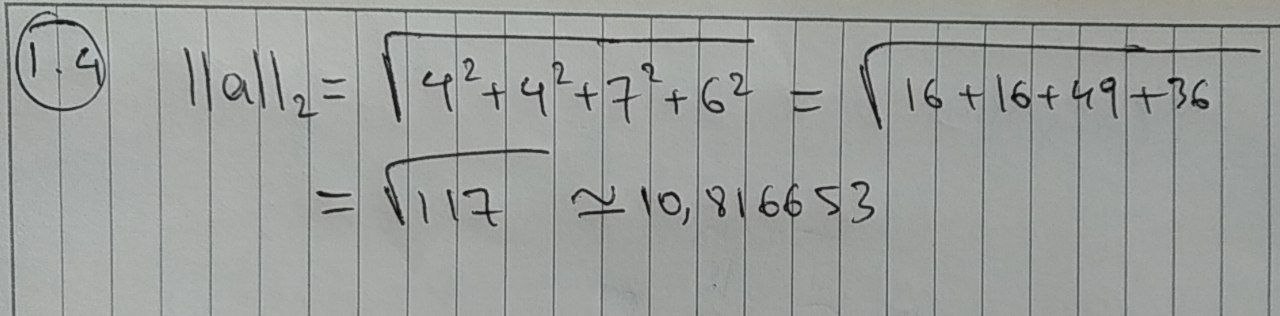 1.4 ||a||₂ = √(4² + 4² + 7² + 6²) = √(16 + 16 + 49 + 36)
= √117 ≃ 10,816653